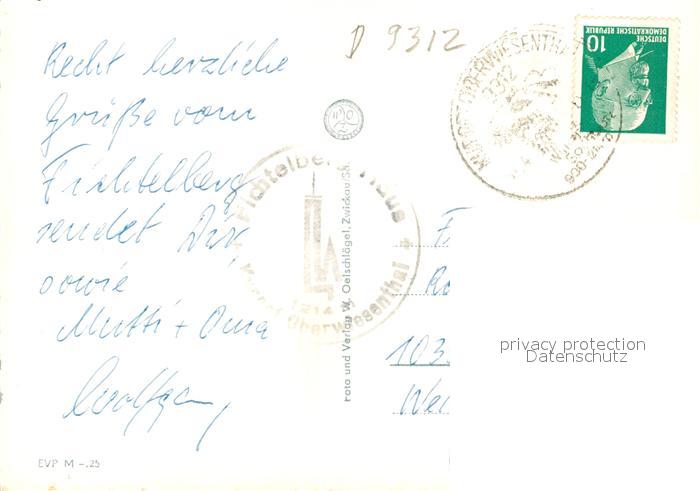 D 9312
Recht herzliche
Grüße vom
Fichtelberg
sendet Dir
sowie
Mutti + Oma
Wolfgang
EVP M -.25
Foto und Verlag W. Oelschlägel, Zwickau/Sa.
Fichtelberg Haus
1214 m
Kurort Oberwiesenthal
KURORT OBERWIESENTHAL
9312
DEUTSCHE
DEMOKRATISCHE REPUBLIK
10
F
Ro
103
We
privacy protection
Datenschutz